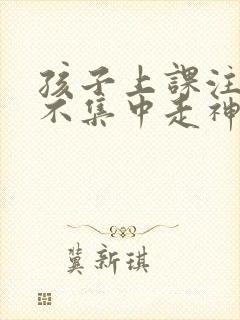 孩子上課注
不集中走神
冀新琪